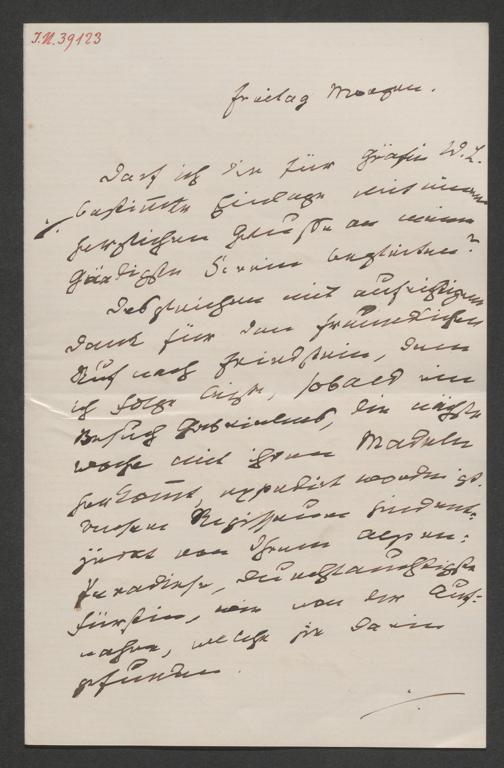 I.N. 39123
Freitag Morgen.
Darf ich die für Gräfin W. L.
bestimmte Einlage mit einem
herzlichen Gruße an meine
gnädigste begleiten?
Desgleichen mit aufrichtigem
Dank für den freundlichen
Ruf nach Friedstein, dem
ich folge leiste, sobald ein
Besuch Gabrielens, die nächste
Woche mit ihren Mädeln
herkommt, expedirt worden ist.
Unsere
von Ihrem Alpen-
Paradiese, durchlauchtigste
Fürstin, wie von der Auf-
nahme, welche sie darin
gefunden.